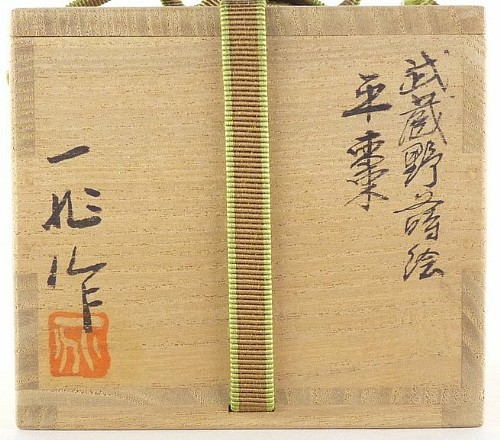 武蔵野蒔絵
平棗
一彬作